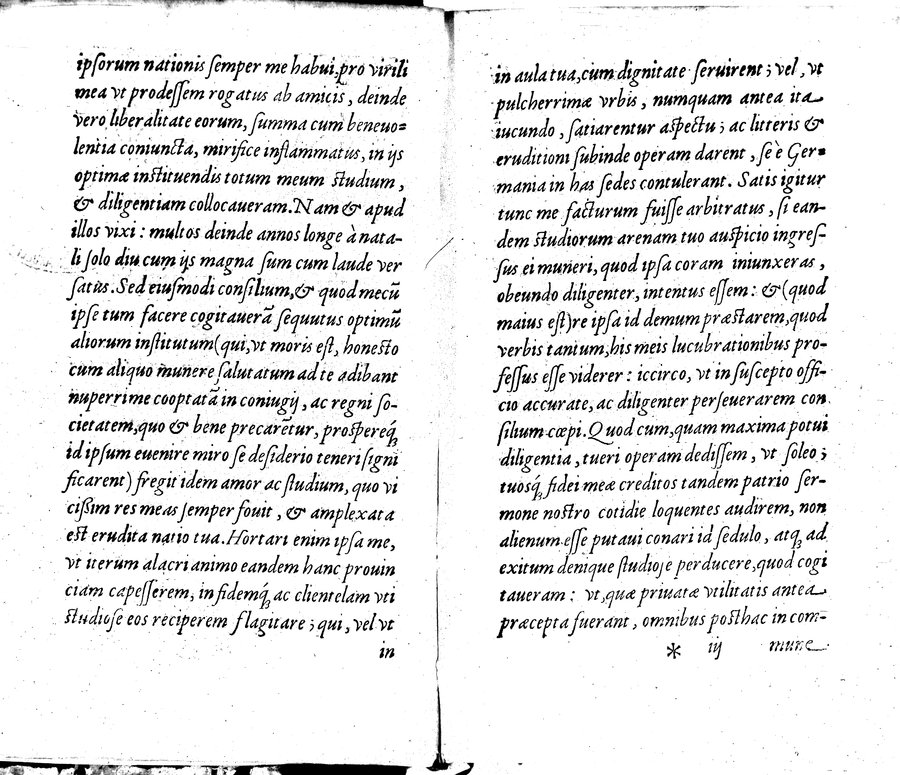 ipſorum nationis ſemper me habui, pro virili
mea vt prodeſſem rogatus ab amicis, deinde
vero liberalitate eorum, ſumma cum beneuo=
lentia coniuncta, mirifice inflammatus, in ijs
optimæ inſtituendis totum meum ſtudium,
& diligentiam collocaueram. Nam & apud
illos vixi: multos deinde annos longe à nata-
li ſolo diu cum ijs magna ſum cum laude ver
ſatus. Sed eiuſmodi conſilium, & quod mecū
ipſe tum facere cogitauerā ſequutus optimū
aliorum inſtitutum (qui, vt moris eſt, honeſto
cum aliquo munere ſalutatum ad te adibant
nuperrime cooptatā in coniugij, ac regni ſo-
cietatem, quo & bene precarētur, proſpereq́;
id ipſum euenire miro ſe deſiderio teneri ſigni
ficarent) fregit idem amor ac ſtudium, quo vi
ciſsim res meas ſemper fouit, & amplexata
eſt erudita natio tua. Hortari enim ipſa me,
vt iterum alacri animo eandem hanc prouin
ciam capeſſerem, in fidemq́; ac clientelam vti
ſtudioſe eos reciperem flagitare; qui, vel vt
in
in aula tua, cum dignitate ſeruirent; vel, vt
pulcherrimæ vrbis, numquam antea ita
iucundo, ſatiarentur aſpectu; ac litteris &
eruditioni ſubinde operam darent, ſe è Ger=
mania in has ſedes contulerant. Satis igitur
tunc me facturum fuiſſe arbitratus, ſi ean-
dem ſtudiorum arenam tuo auſpicio ingreſ-
ſus ei muneri, quod ipſa coram iniunxeras,
obeundo diligenter, intentus eſſem: & (quod
maius eſt) re ipſa id demum præſtarem, quod
verbis tantum, his meis lucubrationibus pro-
feſſus eſſe viderer: iccirco, vt in ſuſcepto offi-
cio accurate, ac diligenter perſeuerarem con
ſilium cœpi. Quod cum, quam maxima potui
diligentia, tueri operam dediſſem, vt ſoleo;
tuosq́; fidei meæ creditos tandem patrio ſer-
mone noſtro cotidie loquentes audirem, non
alienum eſſe putaui conari id ſedulo, atq; ad
exitum denique ſtudioſe perducere, quod cogi
taueram: vt, quæ priuatæ vtilitatis antea
præcepta fuerant, omnibus poſthac in com-
* iij mune